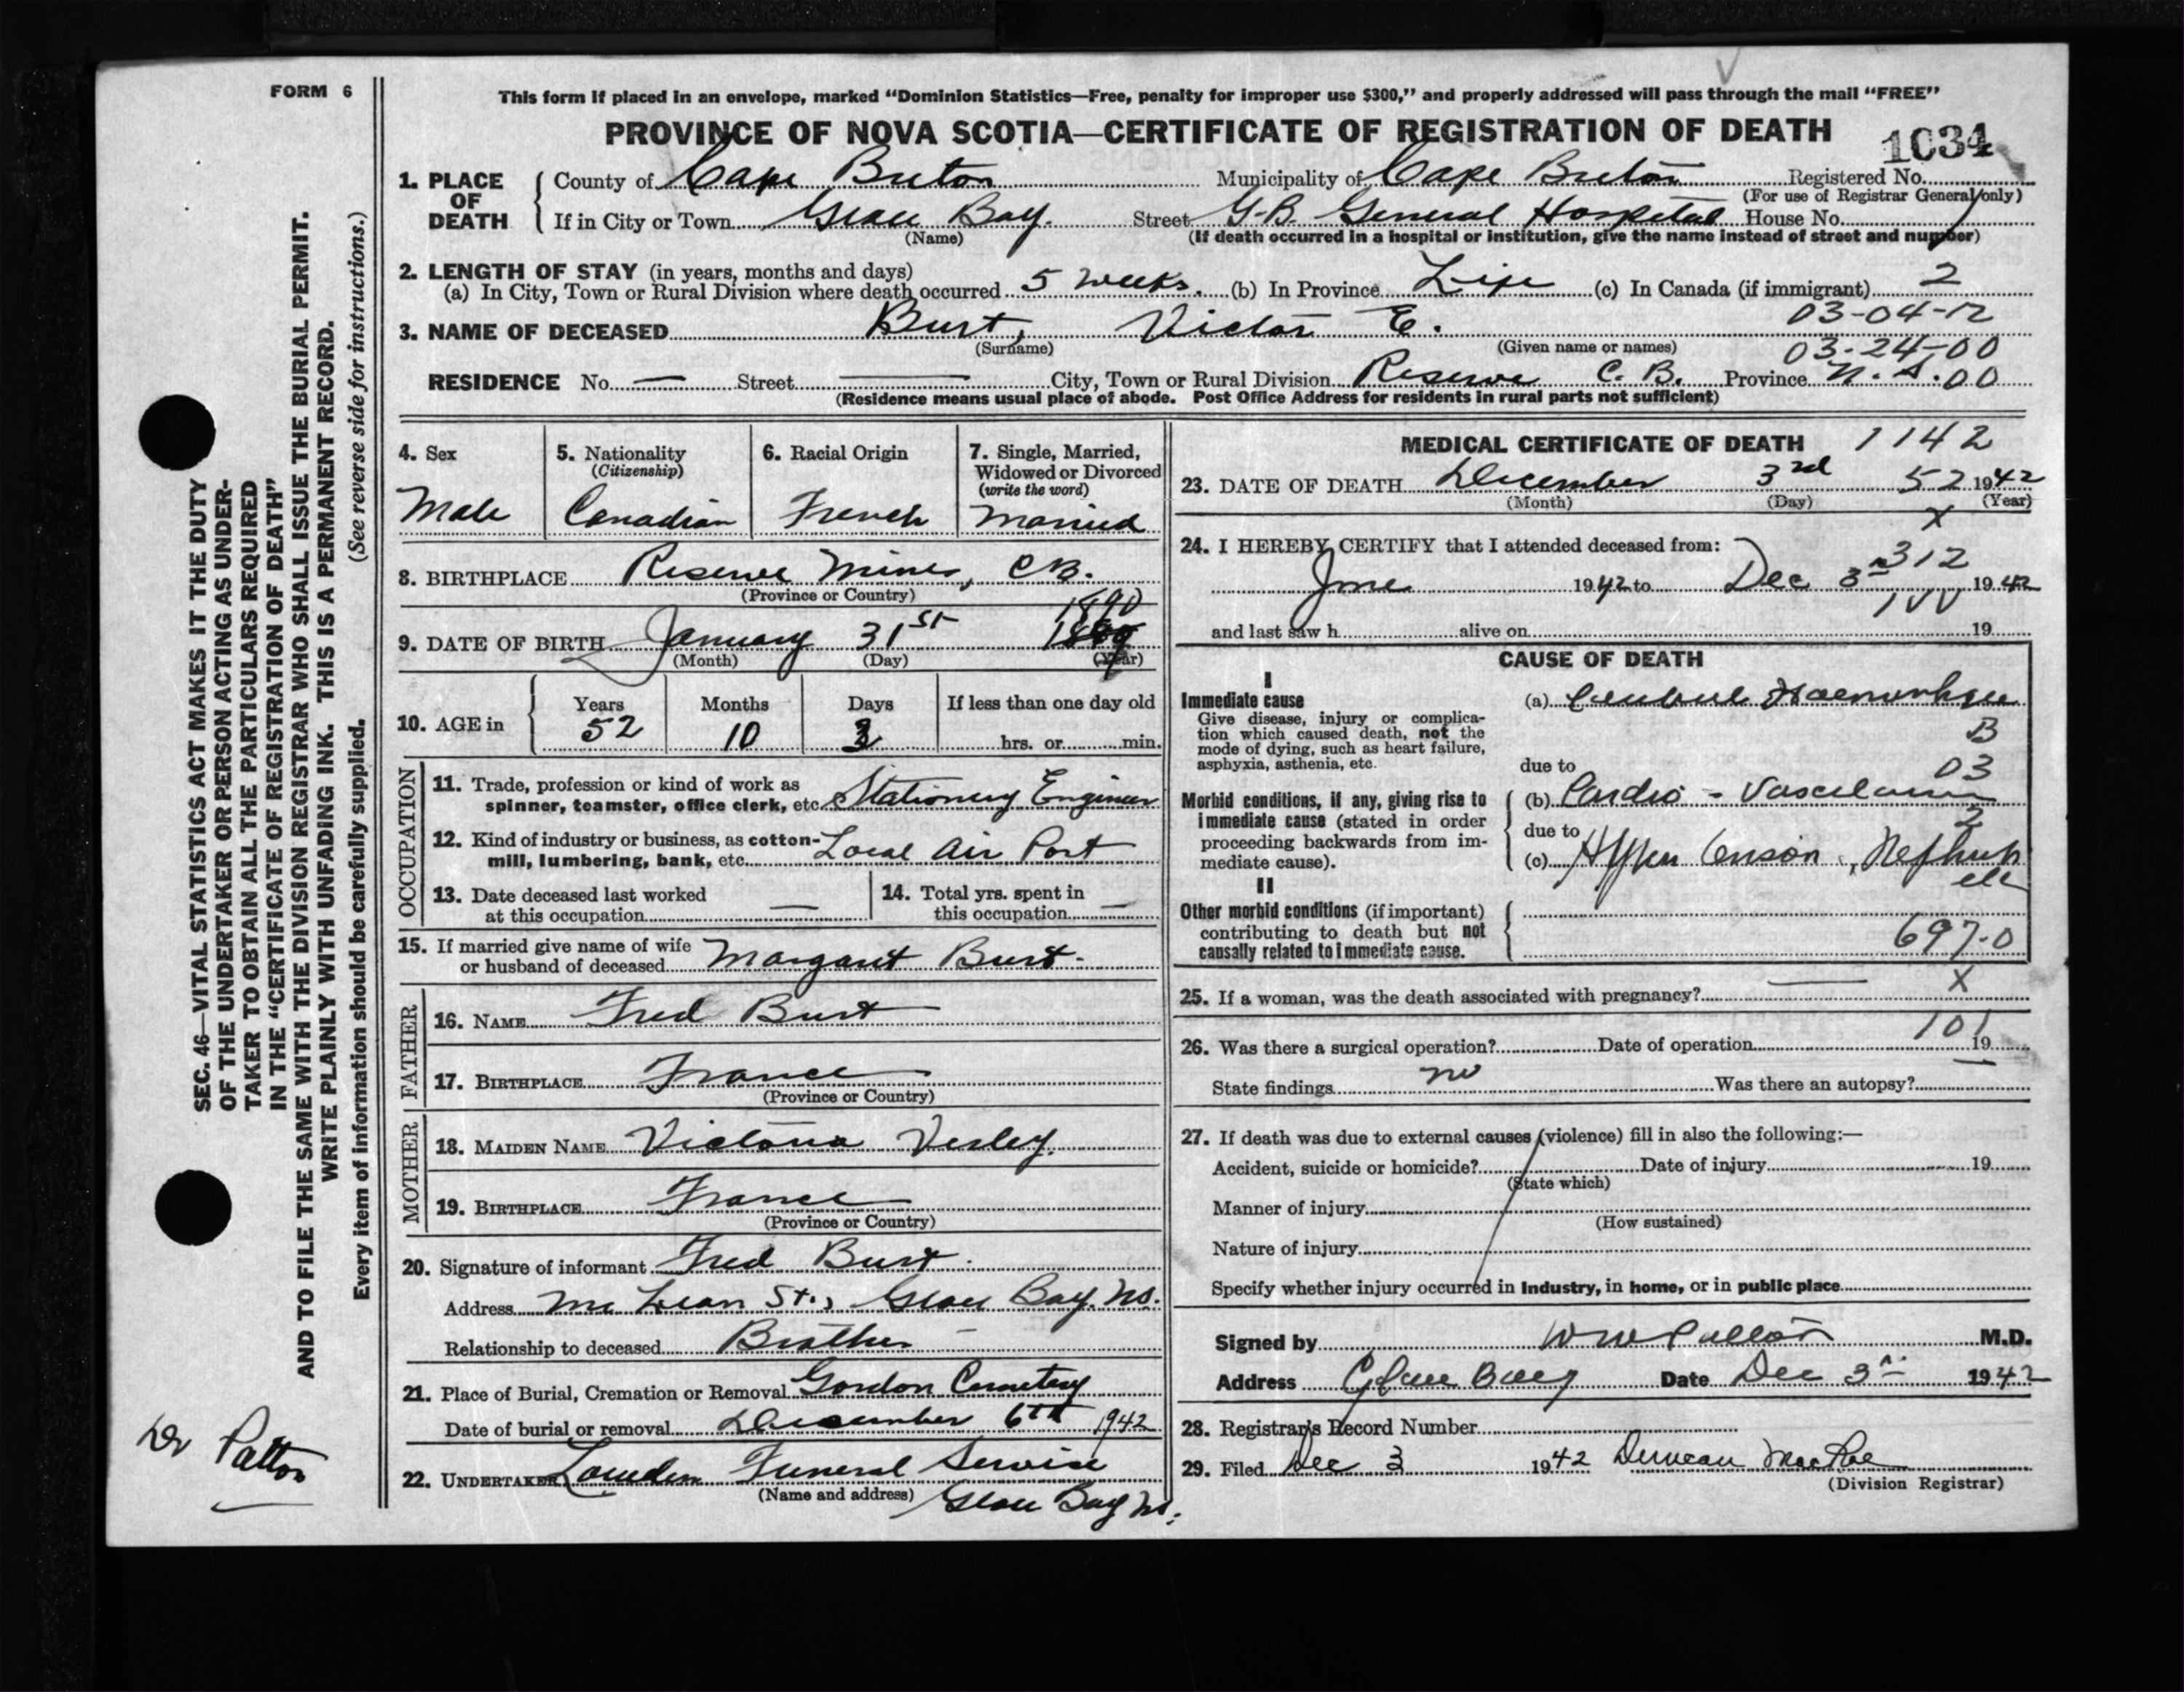 FORM 6
This form if placed in an envelope, marked “Dominion Statistics—Free, penalty for improper use $300,” and properly addressed will pass through the mail “FREE”
PROVINCE OF NOVA SCOTIA—CERTIFICATE OF REGISTRATION OF DEATH
1034
1. PLACE OF DEATH County of Cape Breton Municipality of Cape Breton Registered No.
(For use of Registrar General only)
If in City or Town Glace Bay. Street G.B. General Hospital House No.
(Name) (If death occurred in a hospital or institution, give the name instead of street and number)
2. LENGTH OF STAY (in years, months and days)
(a) In City, Town or Rural Division where death occurred 5 weeks. (b) In Province Life (c) In Canada (if immigrant) 2
03-04-12
3. NAME OF DECEASED Burt, Victor E.
(Surname) (Given name or names) 03-24-00
RESIDENCE No. — Street — City, Town or Rural Division Reserve C. B. Province N. S. 00
(Residence means usual place of abode. Post Office Address for residents in rural parts not sufficient)
4. Sex
Male
5. Nationality
(Citizenship)
Canadian
6. Racial Origin
French
7. Single, Married,
Widowed or Divorced
(write the word)
Married
8. BIRTHPLACE Reserve Mines, C.B.
(Province or Country)
1890
9. DATE OF BIRTH January 31st
(Month) (Day) (Year)
10. AGE in
Years Months Days If less than one day old
52 10 3 hrs. or min.
OCCUPATION
11. Trade, profession or kind of work as
spinner, teamster, office clerk, etc. Stationery Engineer
12. Kind of industry or business, as cotton-
mill, lumbering, bank, etc. Local Air Port
13. Date deceased last worked
at this occupation —
14. Total yrs. spent in
this occupation —
15. If married give name of wife
or husband of deceased Margaret Burt.
FATHER
16. NAME Fred Burt
17. BIRTHPLACE France
(Province or Country)
MOTHER
18. MAIDEN NAME Victoria
19. BIRTHPLACE France
(Province or Country)
20. Signature of informant Fred Burt.
Address McLean St., Glace Bay. N.S.
Relationship to deceased Brother
21. Place of Burial, Cremation or Removal Gordon Cemetery
Date of burial or removal December 6th 1942
22. UNDERTAKER Funeral Service
(Name and address) Glace Bay N.S.
MEDICAL CERTIFICATE OF DEATH 1142
23. DATE OF DEATH December 3rd 52 1942
(Month) (Day) (Year)
X
24. I HEREBY CERTIFY that I attended deceased from:
312
June 1942 to Dec 3rd 1942
and last saw h alive on 19
CAUSE OF DEATH
I
Immediate cause
Give disease, injury or complica-
tion which caused death, not the
mode of dying, such as heart failure,
asphyxia, asthenia, etc.
(a) Cerebral Haemorrhage
B
due to 03
Morbid conditions, if any, giving rise to
immediate cause (stated in order
proceeding backwards from im-
mediate cause).
(b) Cardio - Vascular
due to 2
(c) Hypertension,
II
Other morbid conditions (if important)
contributing to death but not
causally related to immediate cause.
697-0
25. If a woman, was the death associated with pregnancy? — X
101
26. Was there a surgical operation? Date of operation 19
State findings no Was there an autopsy?
27. If death was due to external causes (violence) fill in also the following:—
Accident, suicide or homicide? Date of injury 19
(State which)
Manner of injury
(How sustained)
Nature of injury
Specify whether injury occurred in Industry, in home, or in public place
Signed by W W Patton M.D.
Address Glace Bay Date Dec 3rd 1942
28. Registrar's Record Number
29. Filed Dec 3 1942 Duncan MacRae
(Division Registrar)
SEC. 46—VITAL STATISTICS ACT MAKES IT THE DUTY
OF THE UNDERTAKER OR PERSON ACTING AS UNDER-
TAKER TO OBTAIN ALL THE PARTICULARS REQUIRED
IN THE “CERTIFICATE OF REGISTRATION OF DEATH”
AND TO FILE THE SAME WITH THE DIVISION REGISTRAR WHO SHALL ISSUE THE BURIAL PERMIT.
WRITE PLAINLY WITH UNFADING INK. THIS IS A PERMANENT RECORD.
Every item of information should be carefully supplied. (See reverse side for instructions.)
Dr Patton